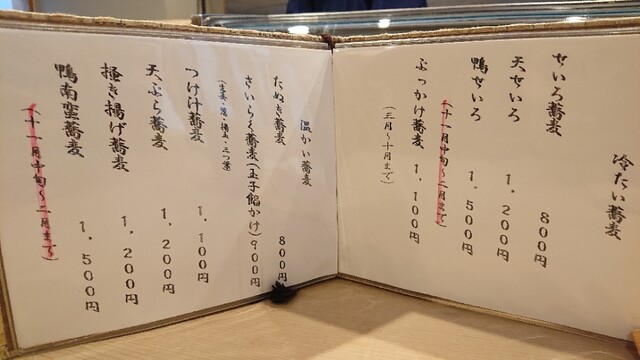 冷たい蕎麦
せいろ蕎麦 800円
天せいろ 1,200円
鴨せいろ 1,500円
(十一月中旬~二月まで)
ぶっかけ蕎麦 1,100円
(三月~十月まで)
温かい蕎麦
たぬき蕎麦 800円
さいらく蕎麦(玉子餡かけ)900円
つけ汁蕎麦 1,100円
天ぷら蕎麦 1,200円
掻き揚げ蕎麦 1,200円
鴨南蛮蕎麦 1,500円
(十一月中旬~二月まで)